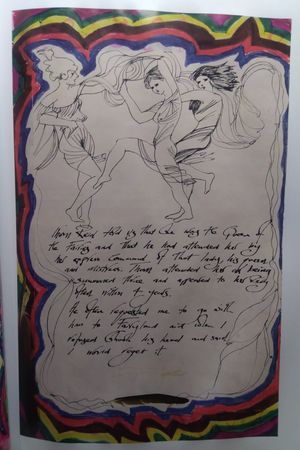 Thom Reid told us that she was the Queen of
the Fairies and that he had attended her by
her express command of that lady, his queen
and mistress. Thom attended her on being
summoned thrice and appeared to her very
often within 4 years.
He often requested me to go with
him to Fairyland and when I
refused Shook his head and said
would repent it